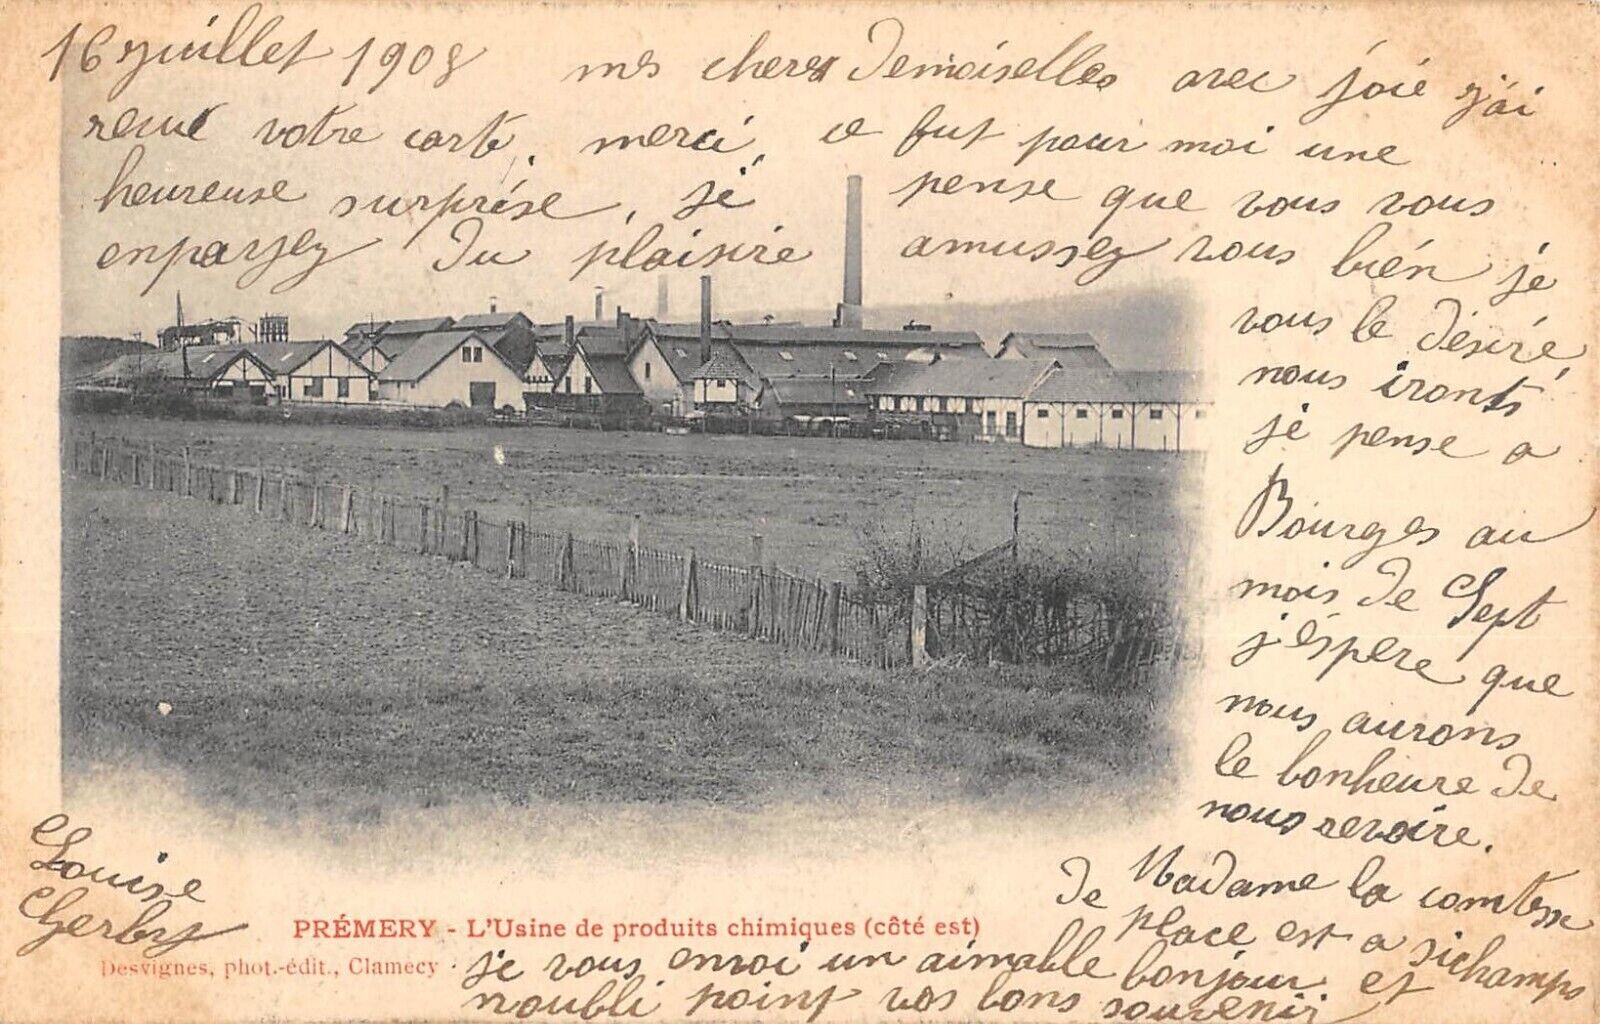 16 Juillet 1908 mes cheres Demoiselles avec joié j'ai
recué votre carté, merci, ce fut pour moi une
heureuse surprise, jé pense que vous vous
enparsjez Du plaisire amussez vous bién je
vous le désiré,
nous ironts
jé pense a
Bourges au
mois De Sept
j'éspere que
nous aurons
le bonheure De
nous revoire.
Madame la comtesse
De place est a sichamps
je vous envoi un aimable bonjour et
n'oubli point vos bons souvenir
Louise
Gerbry
PRÉMERY - L'Usine de produits chimiques (côté est)
Desvignes, phot.-édit., Clamecy